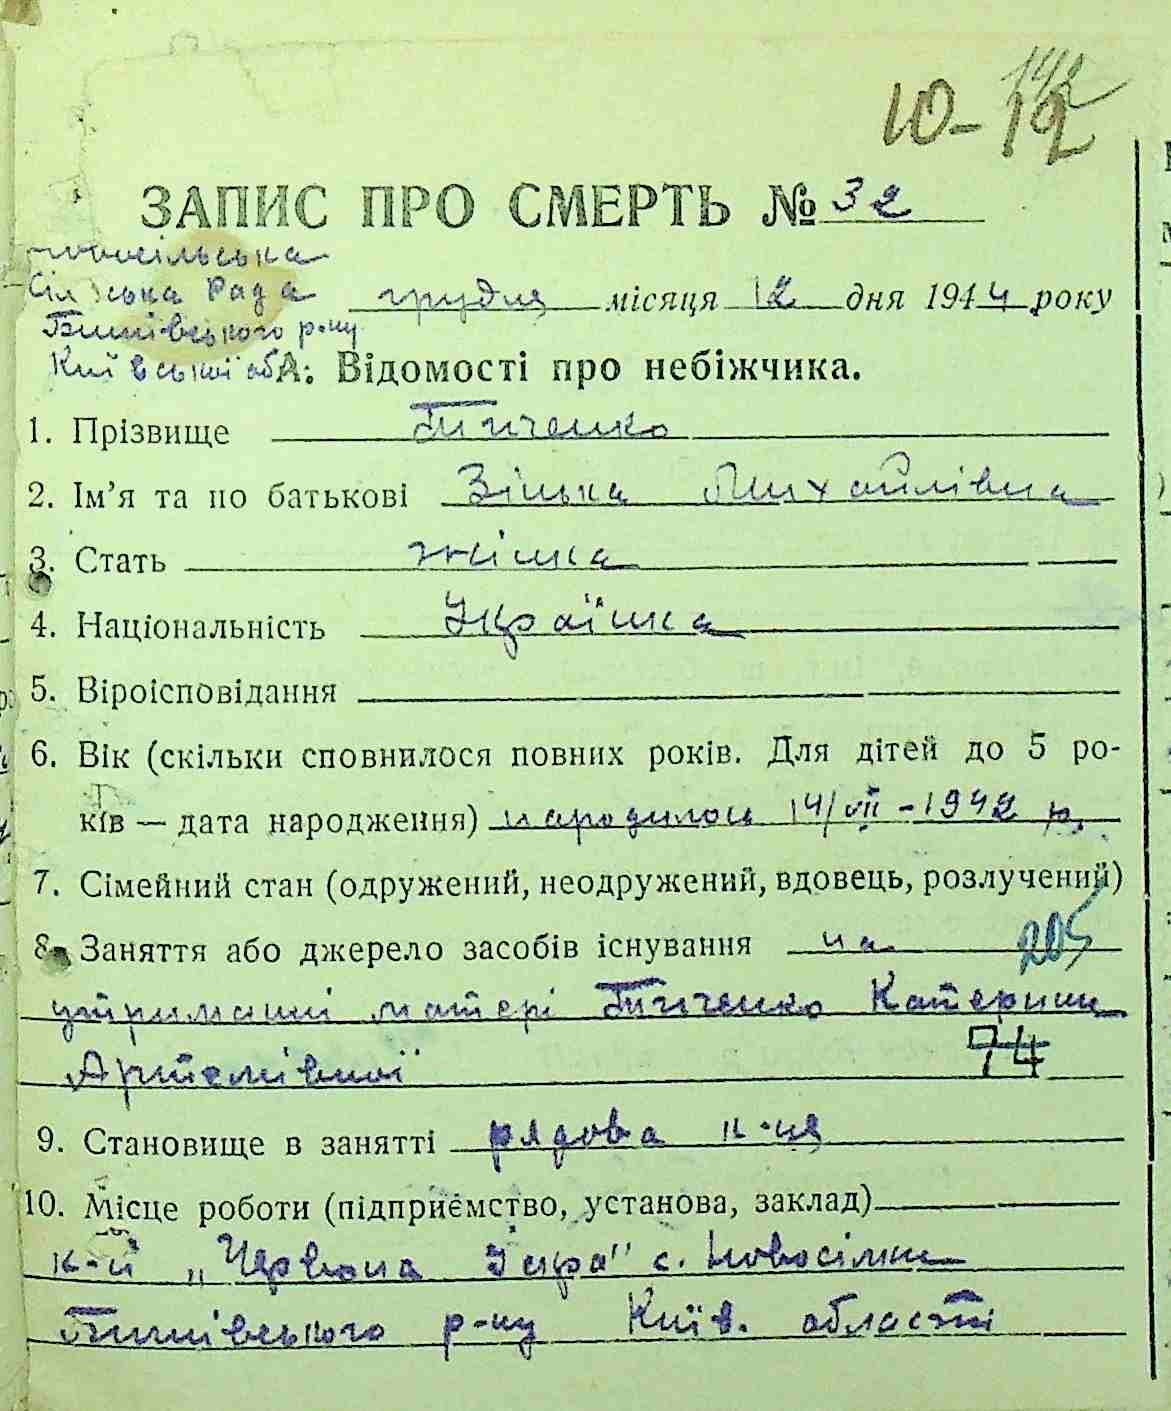 10-12
ЗАПИС ПРО СМЕРТЬ № 32
Сільська Рада
грудня місяця 12 дня 1944 року
р-ну
Київської обл
А. Відомості про небіжчика.
1. Прізвище
2. Ім'я та по батькові Зінька Михайлівна
3. Стать жінка
4. Національність Українка
5. Віроісповідання
6. Вік (скільки сповнилося повних років. Для дітей до 5 ро-
ків — дата народження) народилась 14/VII - 1942 р.
7. Сімейний стан (одружений, неодружений, вдовець, розлучений)
8. Заняття або джерело засобів існування на 205
утриманні матері Катерини
Артемівної 74
9. Становище в занятті рядова к-ця
10. Місце роботи (підприємство, установа, заклад)
к-п „Червона Іскра" с. Новосілки
р-ну Київ. області